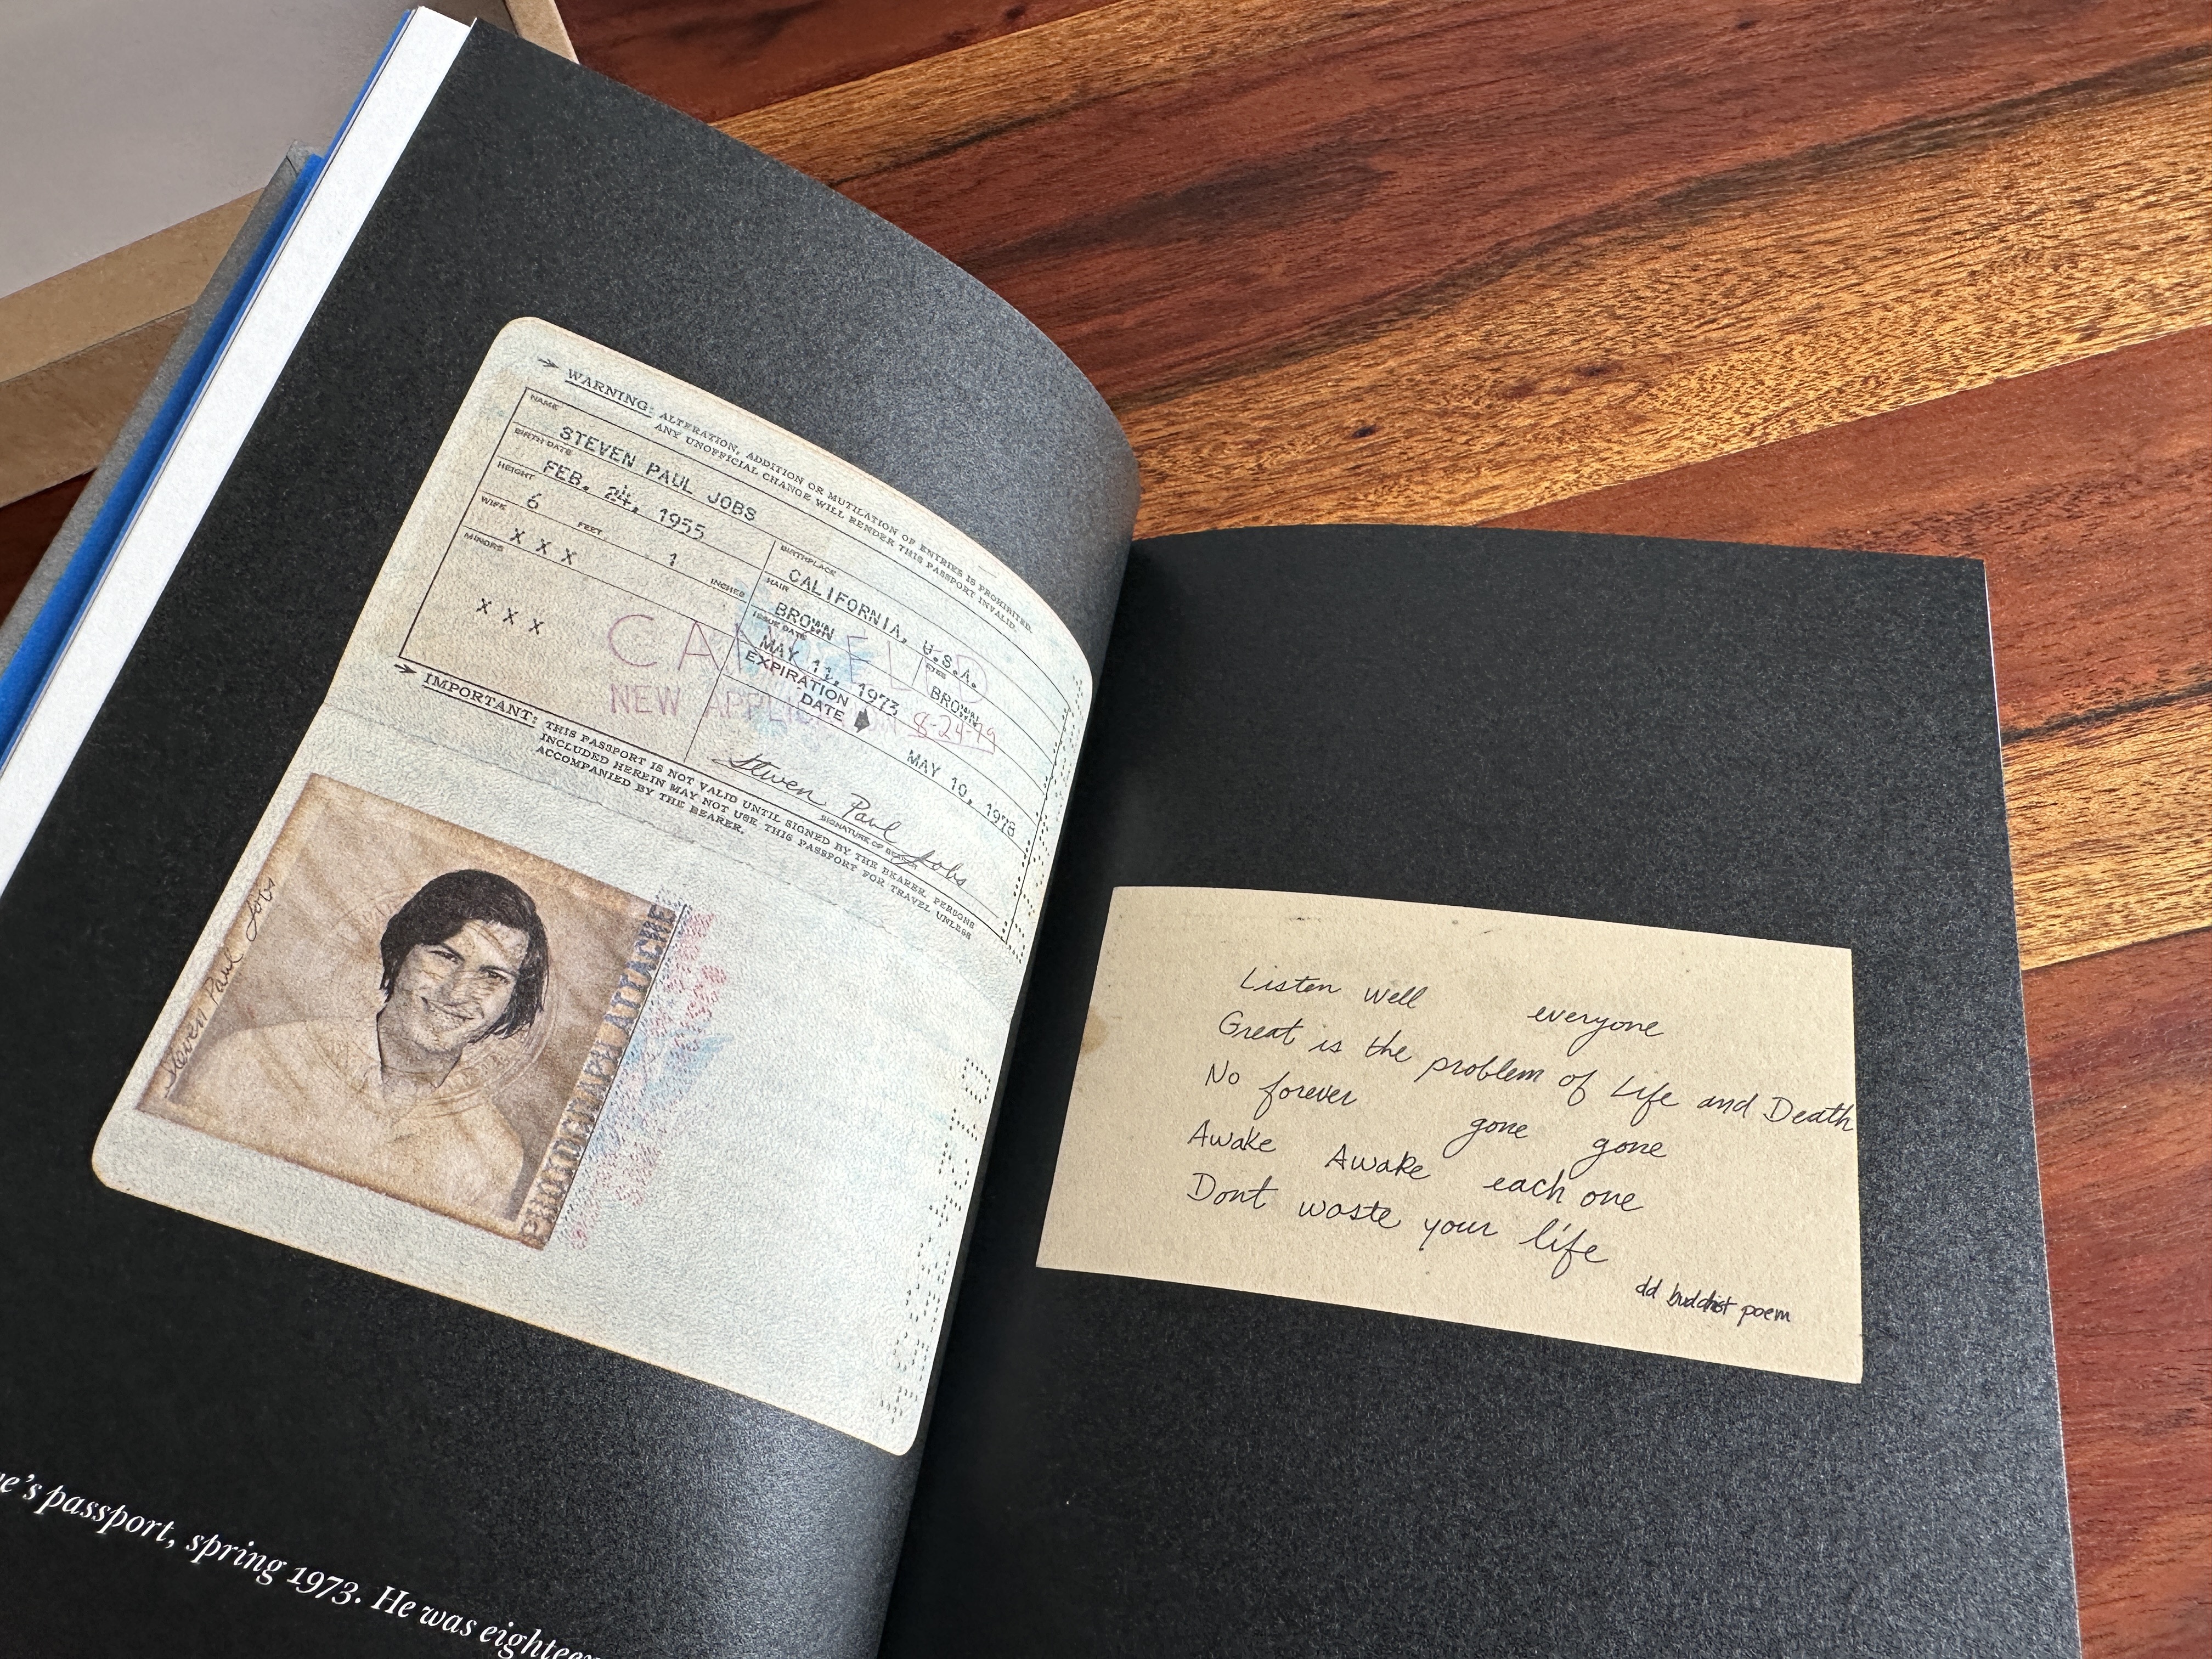 WARNING: ALTERATION, ADDITION OR MUTILATION OF ENTRIES IS PROHIBITED.
ANY UNOFFICIAL CHANGE WILL RENDER THIS PASSPORT INVALID.
NAME
STEVEN PAUL JOBS
BIRTH DATE
FEB. 24, 1955
BIRTHPLACE
CALIFORNIA, U.S.A.
HEIGHT
6 FEET 1 INCHES
HAIR
BROWN
EYES
BROWN
WIFE
X X X
ISSUE DATE
MAY 11, 1973
MINORS
X X X
EXPIRATION
DATE
MAY 10, 1978
CANCELED
NEW APPLICATION 8-24-79
Steven Paul Jobs
SIGNATURE OF BEARER
IMPORTANT: THIS PASSPORT IS NOT VALID UNTIL SIGNED BY THE BEARER. PERSONS
INCLUDED HEREIN MAY NOT USE THIS PASSPORT FOR TRAVEL UNLESS
ACCOMPANIED BY THE BEARER.
Steven Paul Jobs
PHOTOGRAPH ATTACHED
e's passport, spring 1973. He was eighteen
Listen well everyone
Great is the problem of Life and Death
No forever gone gone
Awake Awake each one
Dont waste your life
buddhist poem